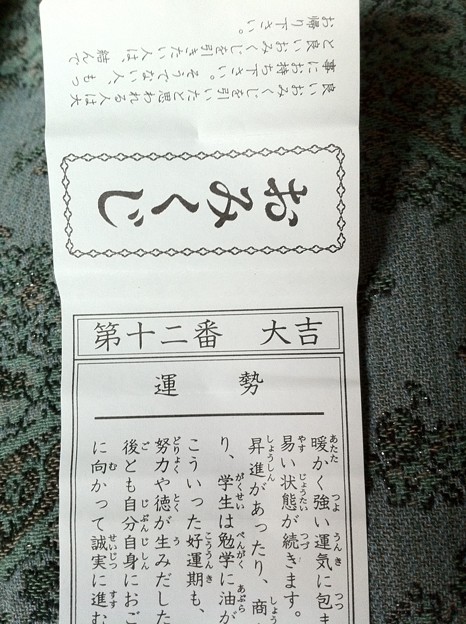 良いおみくじを引いたと思われる人は大
事にお持ち下さい。そうでない人、もっ
と良いおみくじを引きたい人は、結んで
お帰り下さい。
おみくじ
第十二番 大吉
運勢
暖かく強い運気に包ま
易い状態が続きます。
昇進があったり、商
り、学生は勉学に油が
こういった好運期も、
努力や徳が生みだした
後とも自分自身におご
に向かって誠実に進む